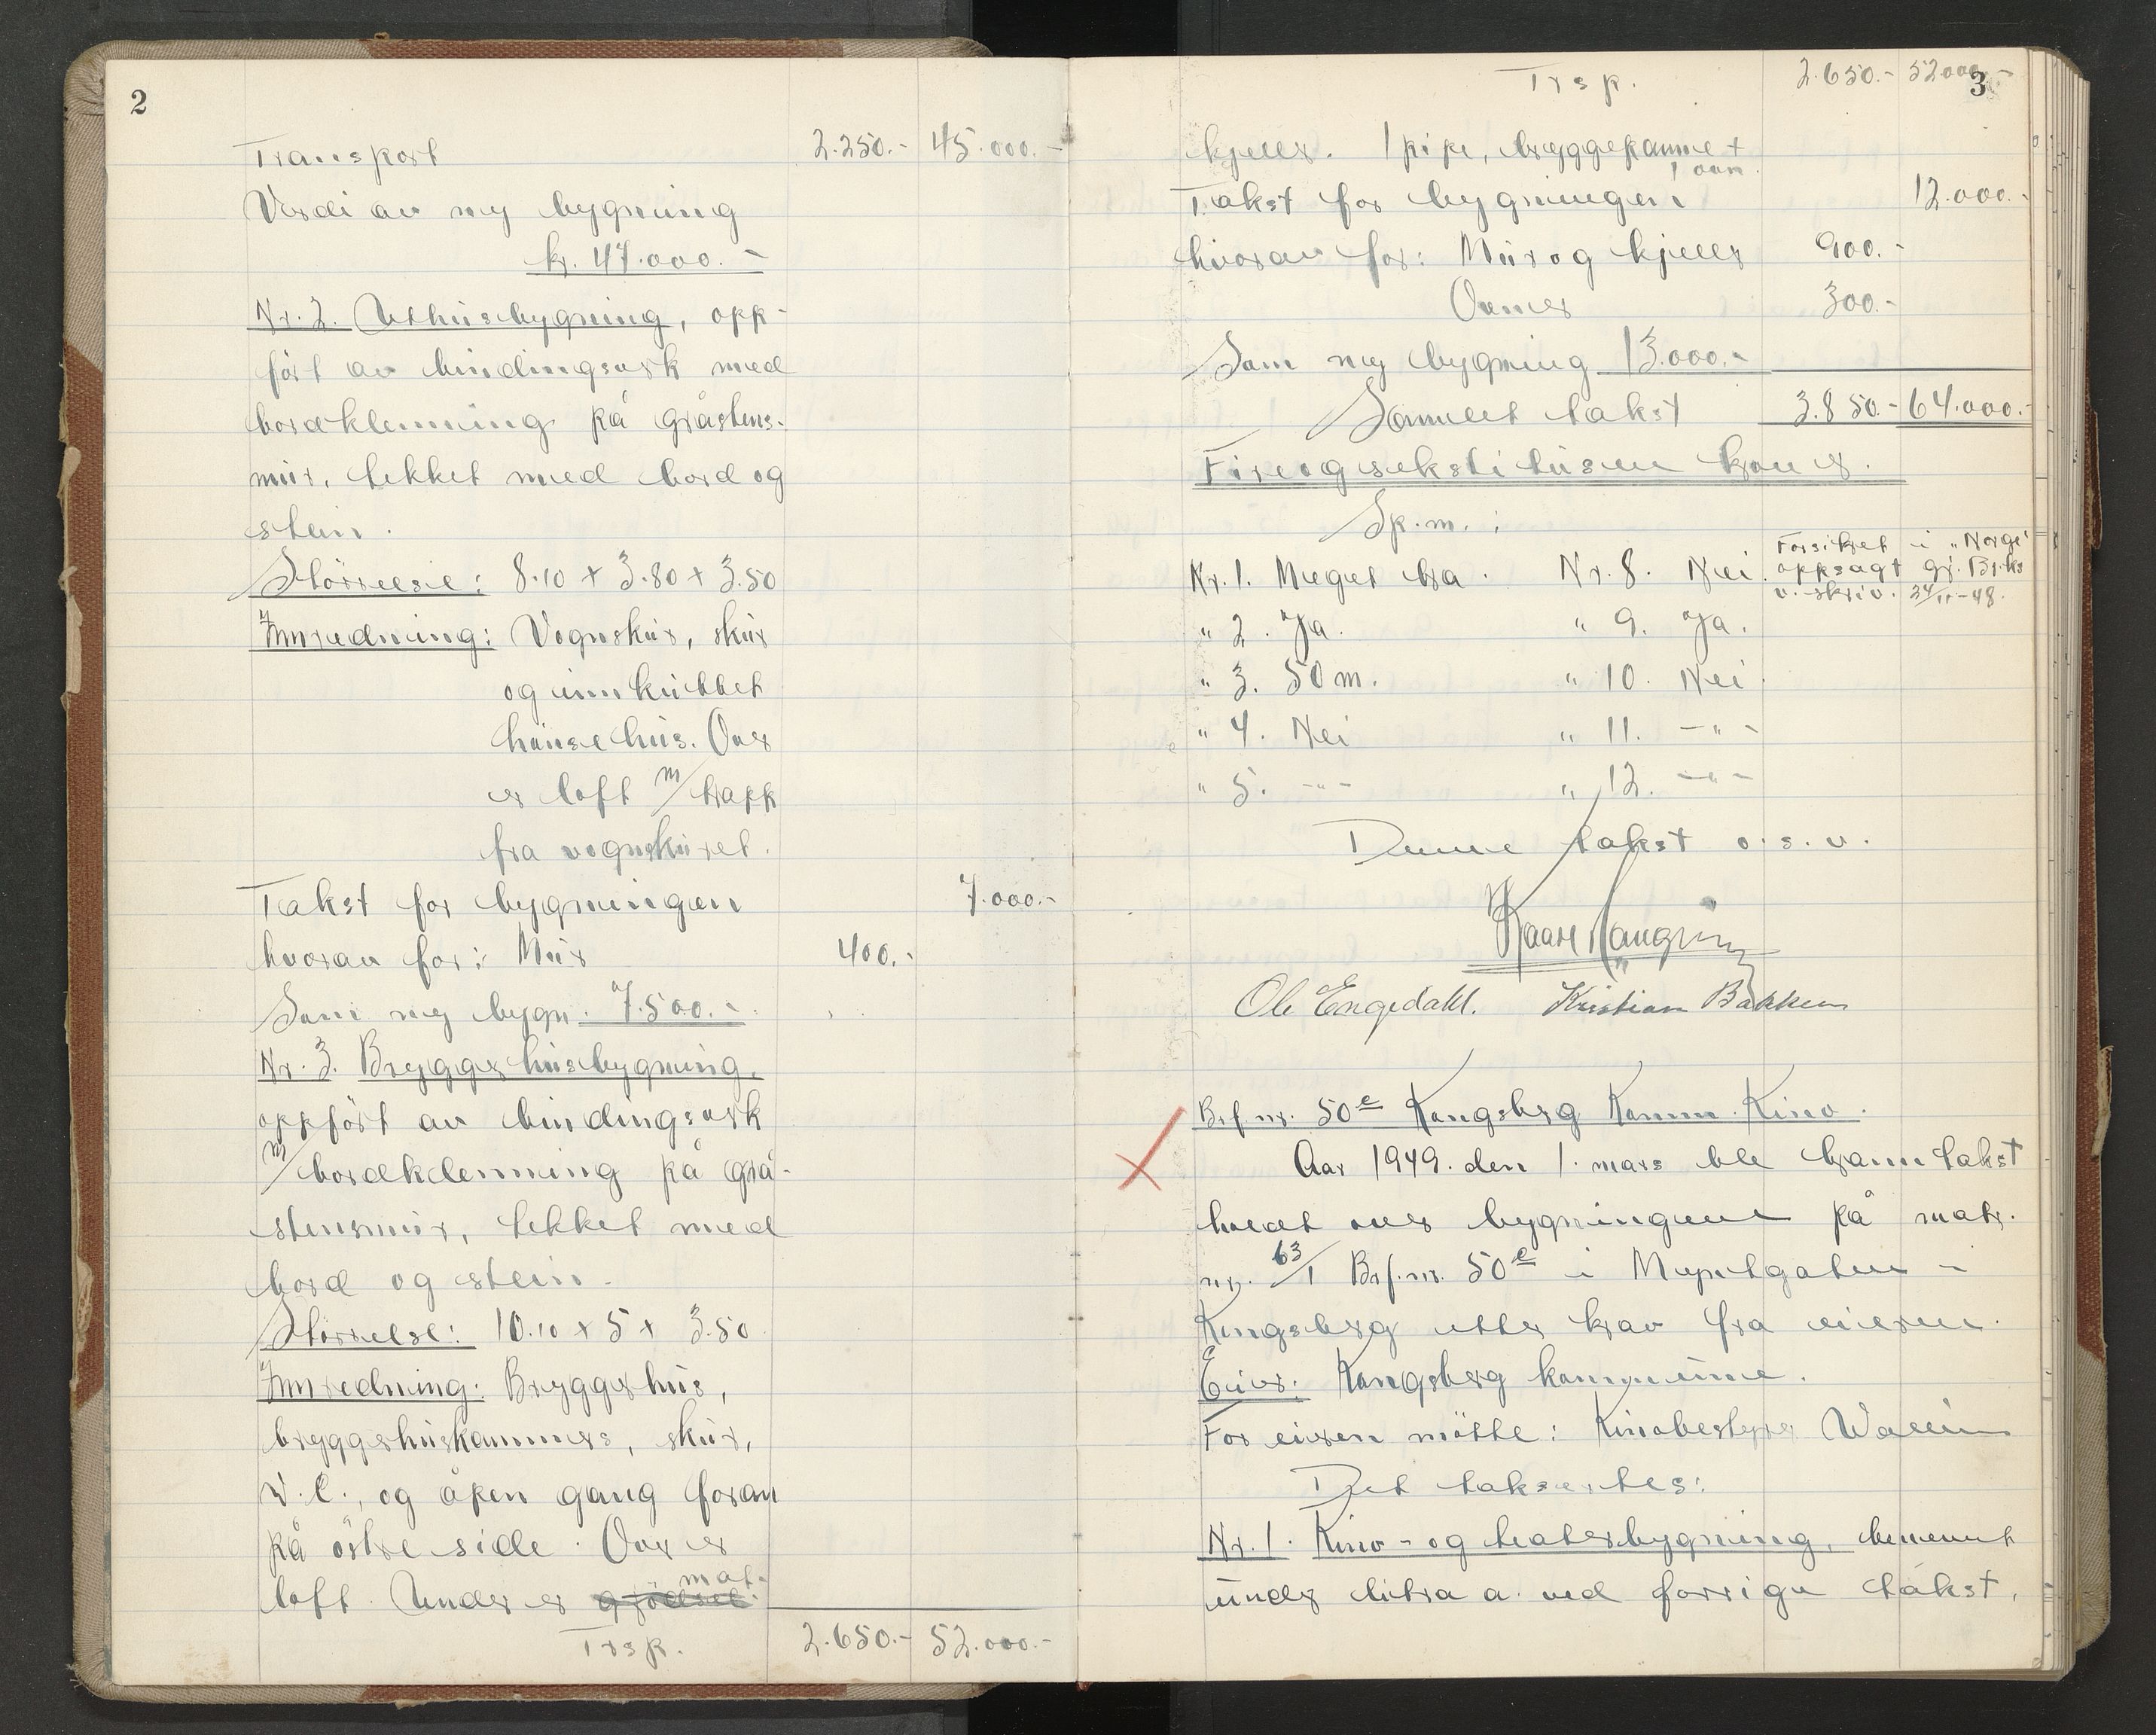 2
Transport 2.250.- 45.000.-
Verdi av ny bygning
kr. 47.000.-
Nr. 2. Uthusbygning, opp-
ført av bindingsverk med
bordklenning på gråstens-
mur, tekket med bord og
stein.
Størrelse: 8.10 x 3.80 x 3.50
Innredning: Vognskur, skur
og innkubbet
hønsehus. Over
er loft m/ trapp
fra vognskuret.
Takst for bygningen 7.000.-
hvorav for: Mur 400.-
Som ny bygn. 7.500.-
Nr. 3. Bryggerhusbygning,
oppført av bindingsverk
m/ bordklenning på grå-
stensmur, tekket med
bord og stein.
Størrelse: 10.10 x 5 x 3.50
Innredning: Bryggerhus,
bryggerhuskammers, skur,
W.C., og åpen gang foran
på østre side. Over er
loft. Under er mat-
Trsp. 2.650.- 52.000.-
3
Trsp. 2.650.- 52.000.-
kjeller. 1 pipe, bryggepanne +
1 ovn.
Takst for bygningen 12.000.-
hvorav for: Mur og kjeller 900.-
Ovner 300.-
Som ny bygning 13.000.-
Samlet takst 3.850.- 64.000.-
Fireogsekstitusen kroner.
Sp.m.:
Nr. 1. Meget bra. Nr. 8. Nei. Forsikret i "Norge"
oppsagt gj. Br.ks
v. skriv. 24/11-48.
" 2. Ja. " 9. Ja.
" 3. 50 m. " 10. Nei.
" 4. Nei " 11. -"-
" 5. -"- " 12. -"-
Denne takst o.s.v.
Ole Engedahl. Kristian Bakken
Brf.nr. 50e Kongsberg Komm. Kino.
Aar 1949. den 1. mars ble branntakst
holdt over bygningene på matr.
nr. 63/1 Brf.nr. 50e i Myntgaten i
Kongsberg etter krav fra eieren.
Eier: Kongsberg kommune.
For eieren møtte: Kinobestyrer Wallin
Det taksertes:
Nr. 1. Kino- og teaterbygning, benevnt
under litra a. ved forrige takst,